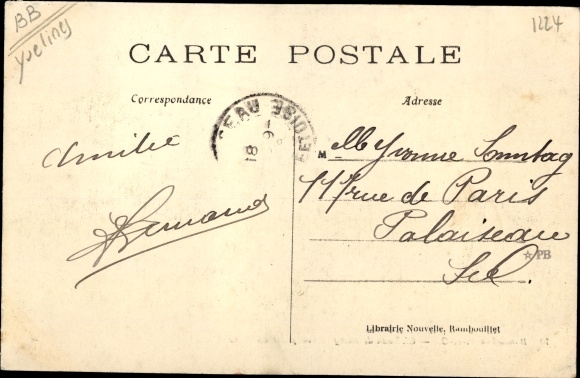 BB
Yvelines
1224
CARTE POSTALE
Correspondance
Adresse
Amitié
M lle Yvonne Sonntag
111 rue de Paris
Palaiseau
☆PB
Librairie Nouvelle, Rambouillet